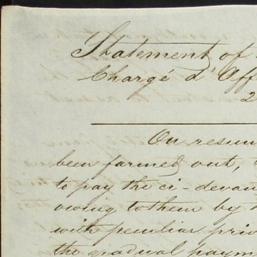 Statement of
Chargé d' Aff
2
On resum
been farmed out,
to pay the ci-devan
owing to them by
with peculiar priv
the gradual paym